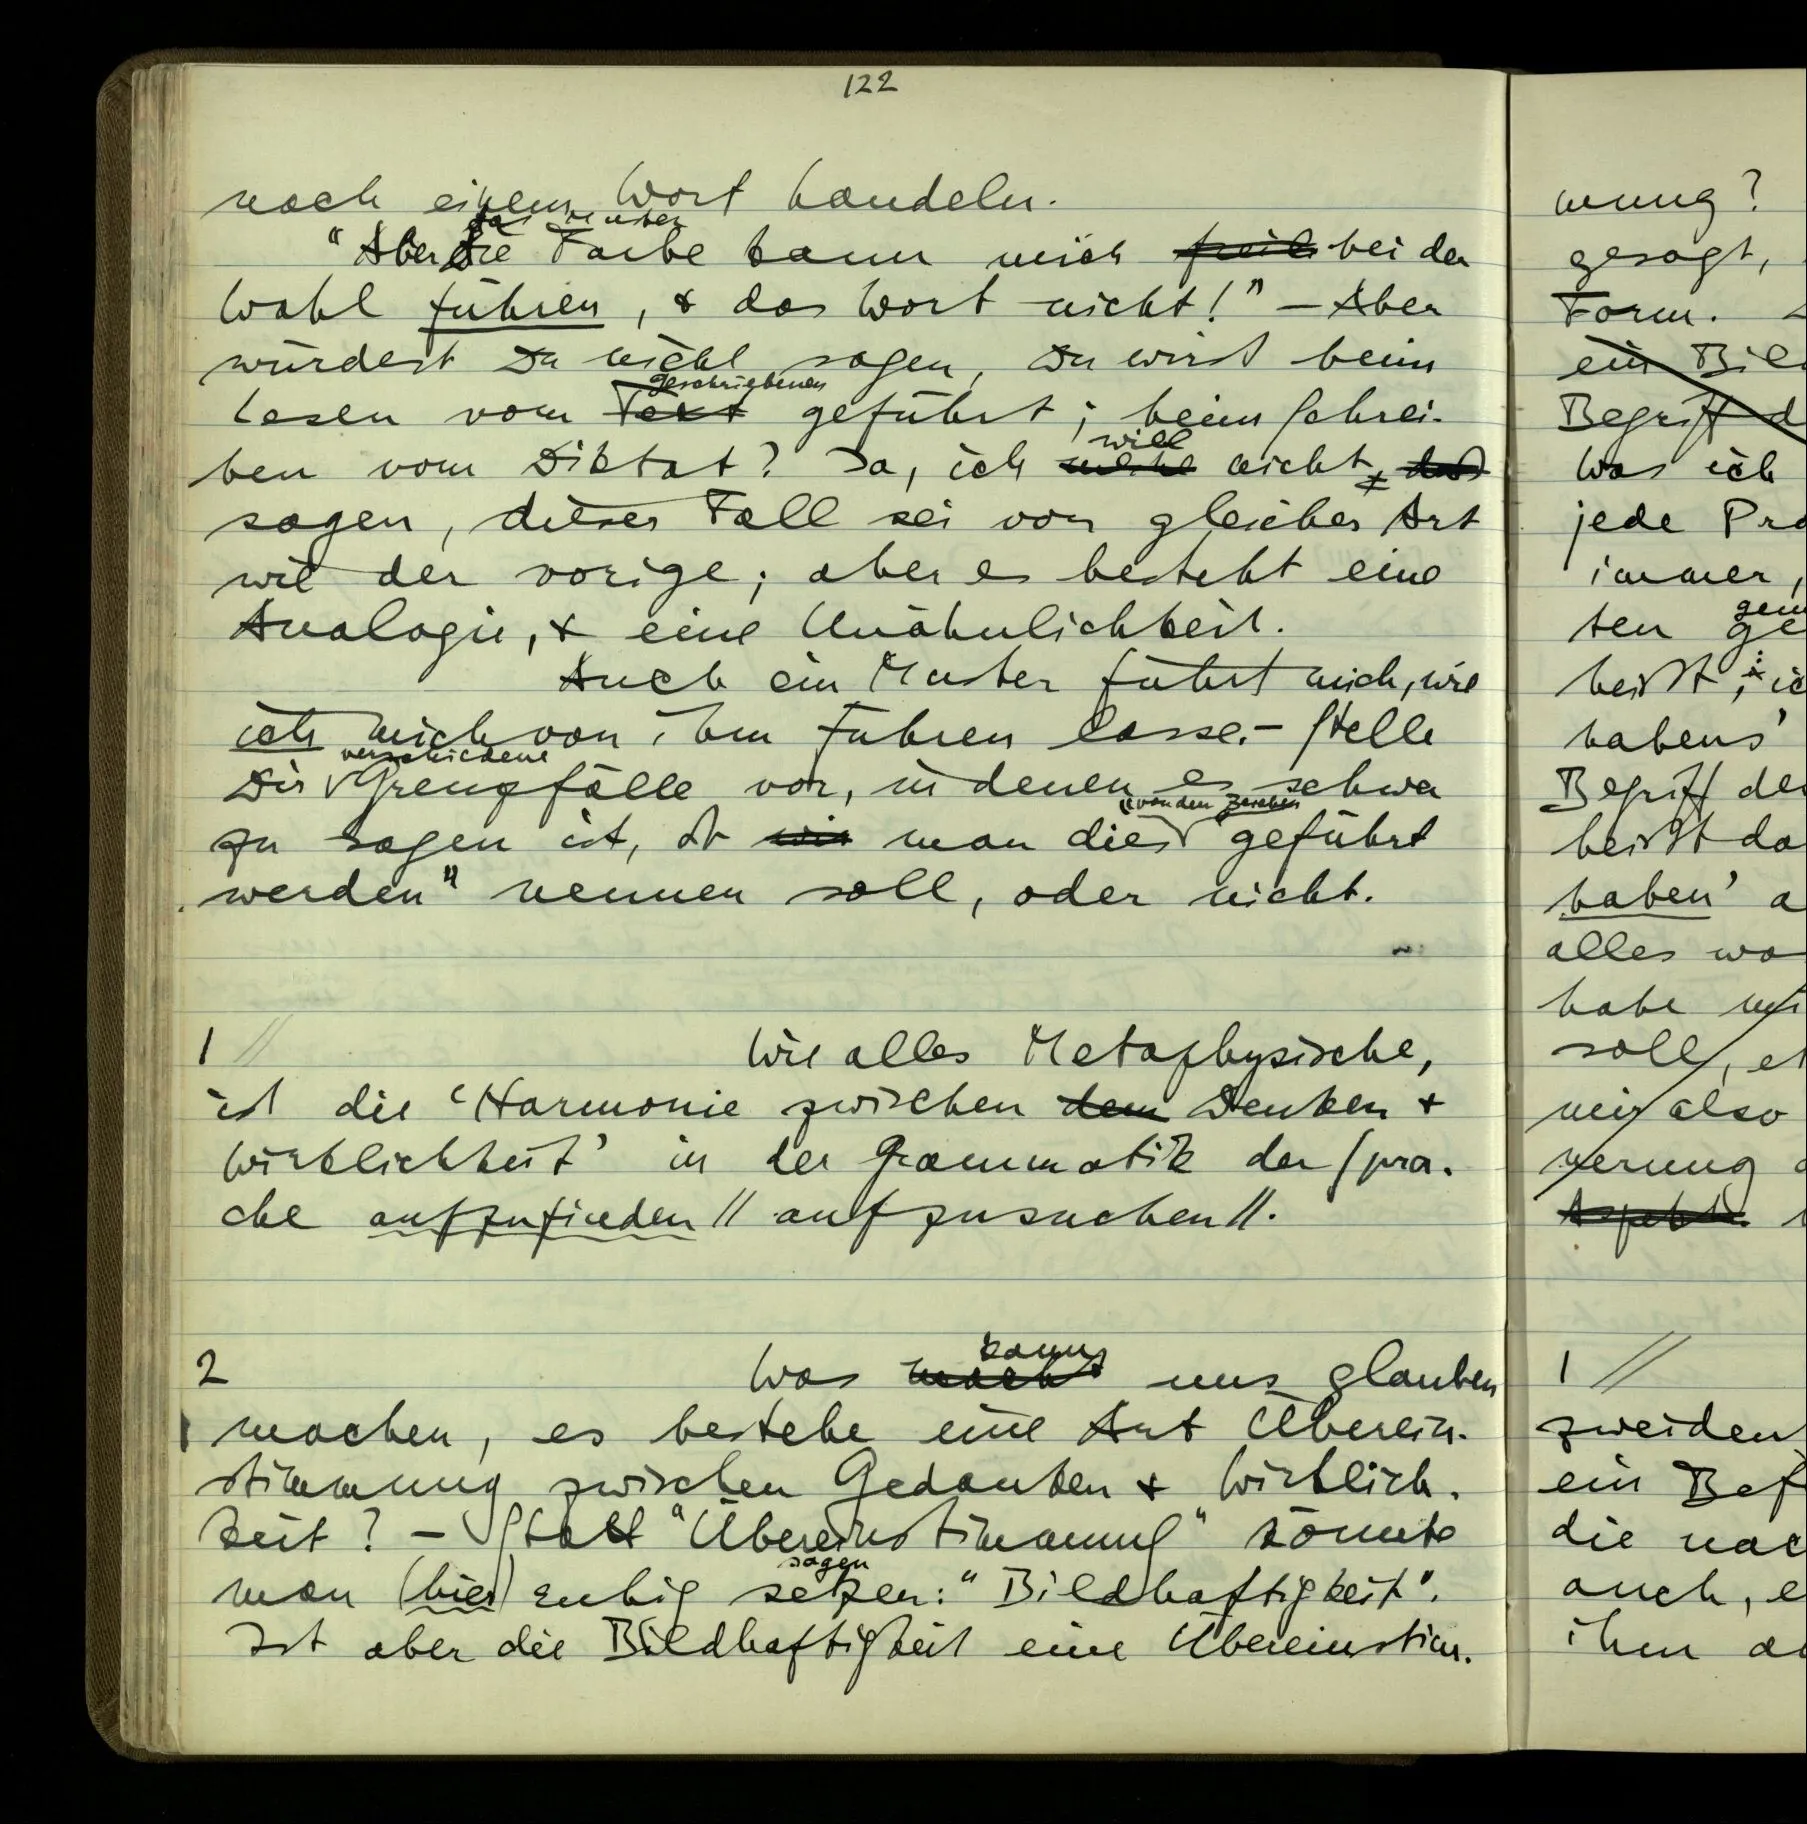 122
nach einem Wort handeln.
das Muster
"Aber die Farbe kann mich bei der
Wahl führen, & das Wort nicht!" – Aber
würdest Du nicht sagen, Du wirst beim
geschriebenen
Lesen vom Text geführt; beim Schrei-
will
ben vom Diktat? Ja, ich nicht, das
sagen, dieser Fall sei von gleicher Art
wie der vorige; aber es besteht eine
Analogie, & eine Unähnlichkeit.
Auch ein Muster führt mich, wie
ich mich von ihm führen lasse. – Stelle
verschiedene
Dir Grenzfälle vor, in denen es schwer
"von den Zeichen
zu sagen ist, ob wir man dies geführt
werden" nennen soll, oder nicht.
1 // Wie alles Metaphysische,
ist die 'Harmonie zwischen dem Denken &
Wirklichkeit' in der Grammatik der Spra-
che aufzufinden // aufzusuchen //.
kann
2 Was macht uns glauben
machen, es bestehe eine Art Überein-
stimmung zwischen Gedanken & Wirklich-
keit? – Statt "Übereinstimmung" könnte
sagen
man (hier) ruhig setzen: "Bildhaftigkeit".
Ist aber die Bildhaftigkeit eine Übereinstim-
mung?
gesagt,
Form.
ein Bil
Begriff d
Was ich
jede Pro
immer,
gem
ten ge
heißt, ic
habens'
Begriff des
heißt da
haben' a
alles wa
habe
soll, et
mir also
nerung
Aspekt
1 //
zweideut
ein Bef
die nac
auch, e
ihm